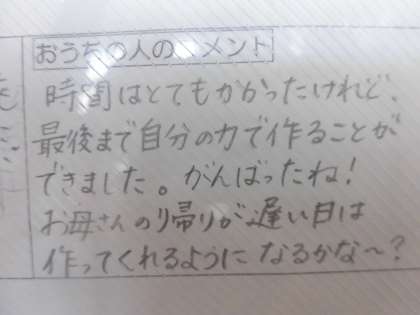 おうちの人のコメント
時間はとてもかかったけれど、
最後まで自分の力で作ることが
できました。がんばったね!
お母さんの帰りが遅い日は
作ってくれるように なるかな〜?